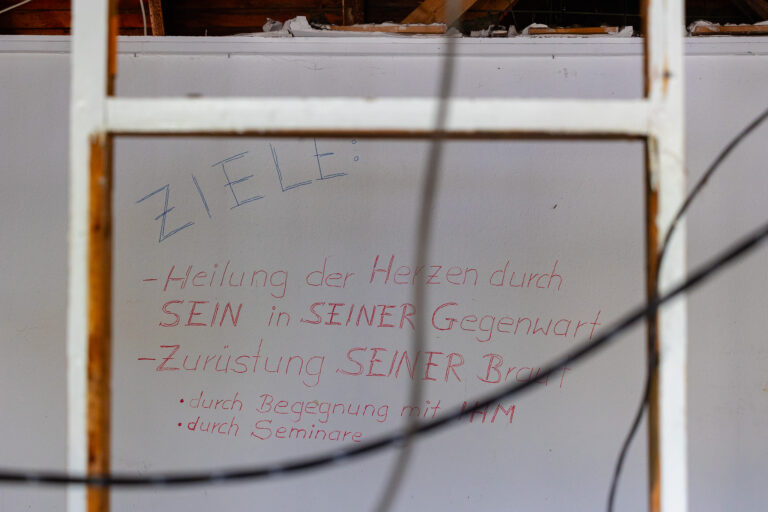 ZIELE:
-Heilung der Herzen durch
SEIN in SEINER Gegenwart
-Zurüstung SEINER Braut
•durch Begegnung mit IHM
•durch Seminare